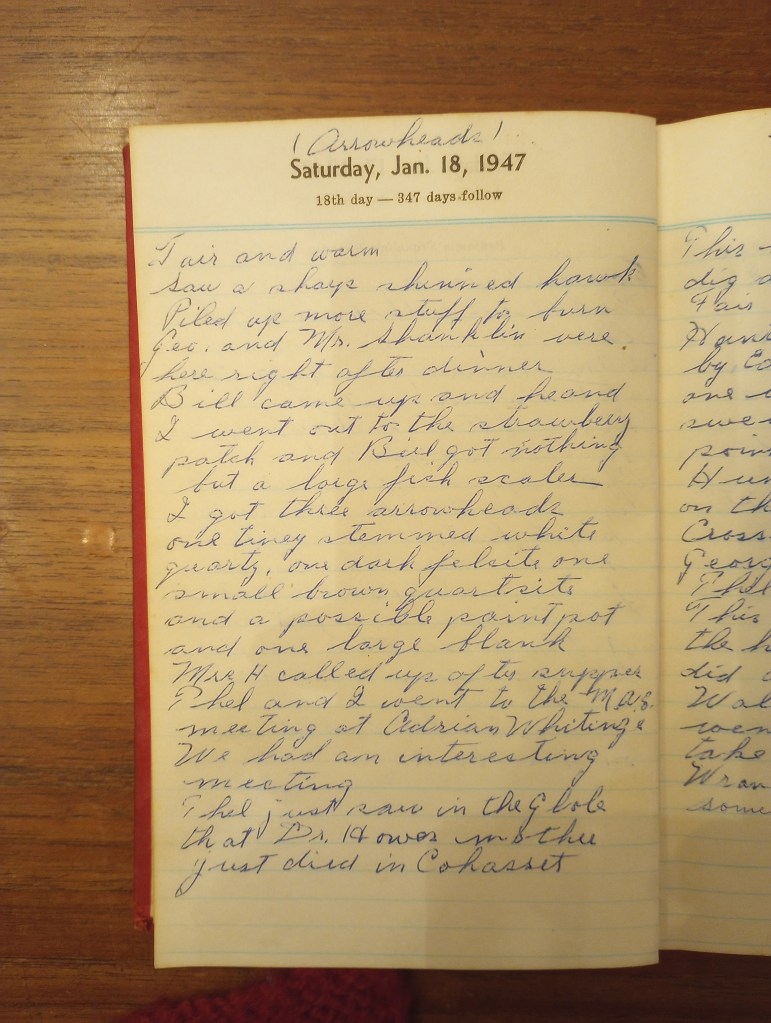 ( Arrowheads )
Saturday, Jan. 18, 1947
18th day — 347 days follow
Fair and warm
Saw a sharp shinned hawk
Piled up more stuff to burn
Geo. and Mr. Shanklin were
here right after dinner
Bill came up and he and
I went out to the strawberry
patch and Bill got nothing
but a large fish scaler
I got three arrowheads
one tiney stemmed white
quartz, one dark felsite one
small brown quartsite
and a possible paint pot
and one large blank
Mrs H called up after supper
Thel and I went to the M.A.S.
meeting at Adrian Whitings
We had an interesting
meeting
Thel just saw in the Globe
that Dr. Howes mother
just died in Cohasset
This
dig
Fair
by
one
on th
Cross
Georg
Thel
This
the h
did
Wal
wen
take
Wran
some